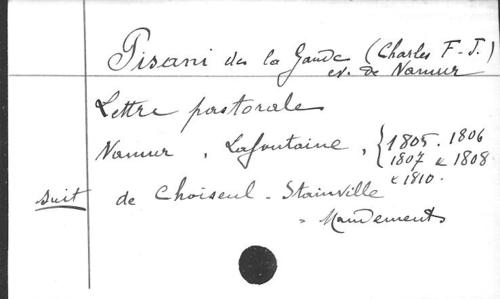 Pisani de la Gaude (Charles F-J.)
ev. de Namur
Lettre pastorale
Namur, Lafontaine, {1805. 1806
1807 & 1808
& 1810.
suit de Choiseul-Stainville
= Mandements